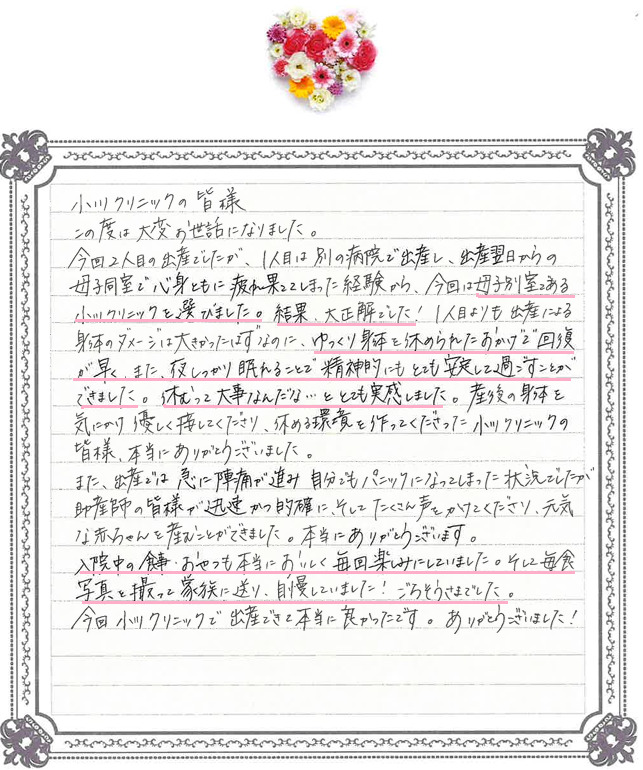 小川クリニックの皆様
この度は大変お世話になりました。
今回2人目の出産でしたが、1人目は別の病院で出産し、出産翌日からの
母子同室で心身ともに疲れ果ててしまった経験から、今回は母子別室である
小川クリニックを選びました。結果、大正解でした！1人目よりも出産による
身体のダメージは大きかったはずなのに、ゆっくり身体を休められたおかげで回復
が早く、また、夜しっかり眠れることで精神的にもとても安定して過ごすことが
できました。休むって大事なんだな…ととても実感しました。産後の身体を
気にかけ優しく接してくださり、休める環境を作ってくださった小川クリニックの
皆様、本当にありがとうございました。
また、出産では急に陣痛が進み自分でもパニックになってしまった状況でしたが
助産師の皆様が迅速かつ的確に、そしてたくさん声をかけてくださり、元気
な赤ちゃんを産むことができました。本当にありがとうございます。
入院中の食事・おやつも本当においしく毎回楽しみにしていました。そして毎食
写真を撮って家族に送り、自慢していました！ごちそうさまでした。
今回小川クリニックで出産できて本当に良かったです。ありがとうございました！